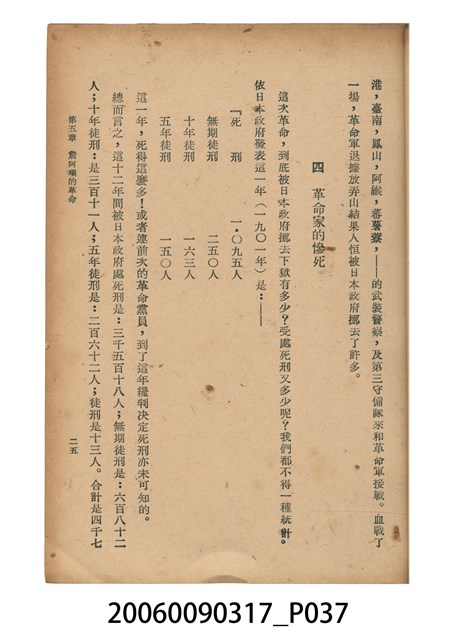 港，臺南，鳳山，阿緱，蕃薯寮，——的武裝警察，及第三守備隊來和革命軍接戰。血戰了
一場，革命軍退據放弄山結果人恒被日本政府挪去了許多。
四　革命家的慘死
這次革命，到底被日本政府挪去下獄有多少？受處死刑又多少呢？我們都不得一種統計。
依日本政府發表這一年（一九〇一年）是：——
『死　刑　一・〇九五人
無期徒刑　二五〇人
十年徒刑　一一〇人
五年徒刑　一五〇人
這一年，死得這麼多！或者連前次的革命黨員，到了這年纔判決定死刑亦未可知的。
總而言之，這十二年間被日本政府處死刑是：三千五百十八人；無期徒刑是：六百八十二
人；十年徒刑：是三百十一人；五年徒刑是：二百六十二人；徒刑是十三人。合計是四千七
第五章　詹阿瑞的革命
二五
20060090317_P037